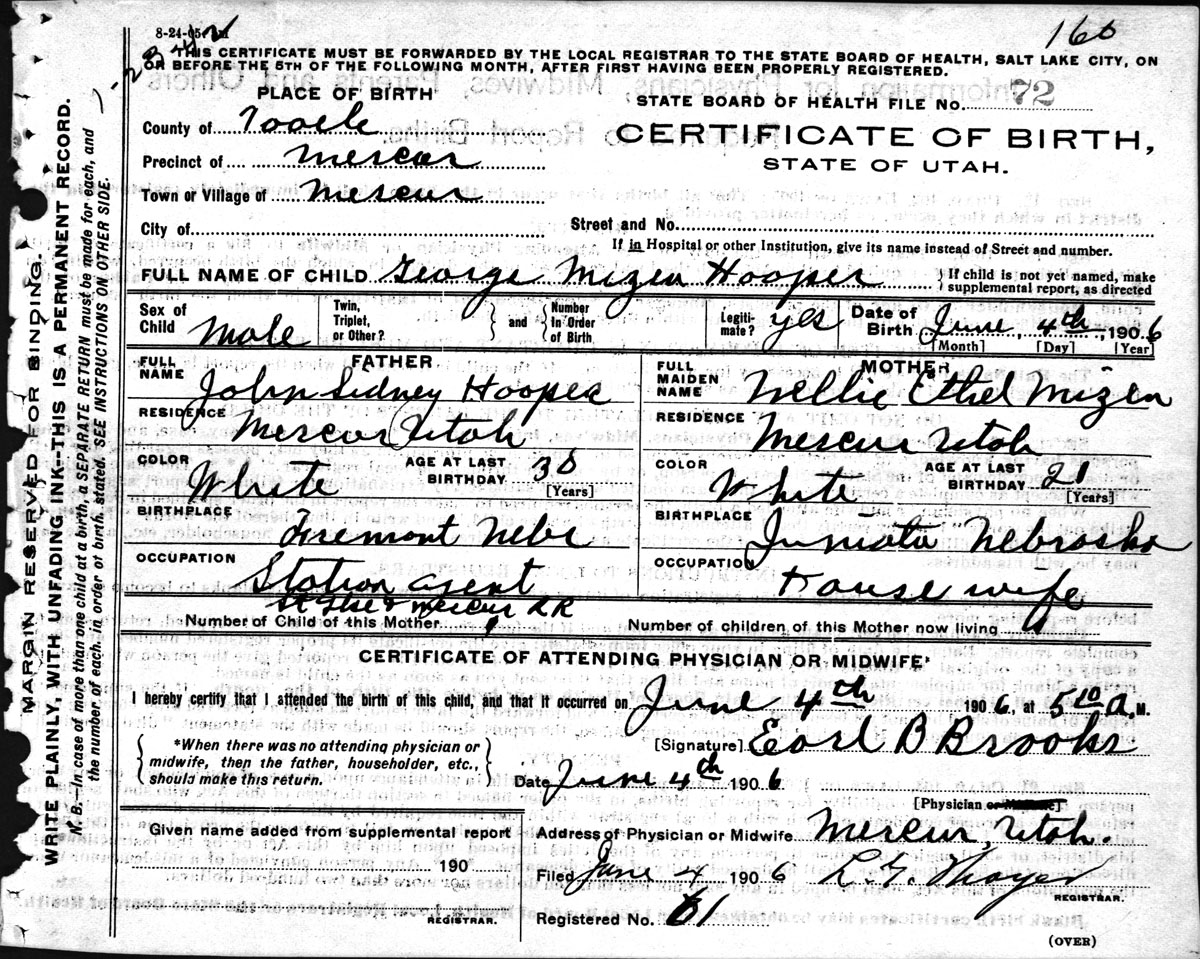 8-24-05
160
THIS CERTIFICATE MUST BE FORWARDED BY THE LOCAL REGISTRAR TO THE STATE BOARD OF HEALTH, SALT LAKE CITY, ON
OR BEFORE THE 5TH OF THE FOLLOWING MONTH, AFTER FIRST HAVING BEEN PROPERLY REGISTERED.
PLACE OF BIRTH
STATE BOARD OF HEALTH FILE No. 72
County of Tooele
CERTIFICATE OF BIRTH,
STATE OF UTAH.
Precinct of Mercur
Town or Village of Mercur
City of
Street and No.
If in Hospital or other Institution, give its name instead of Street and number.
FULL NAME OF CHILD George Mizen Hooper
If child is not yet named, make
supplemental report, as directed
Sex of Child Male
Twin, Triplet, or Other?
and
Number In Order of Birth
Legiti-mate? yes
Date of Birth June, 4th, 1906
[Month] [Day] [Year]
FATHER
FULL NAME John Sidney Hooper
RESIDENCE Mercur Utah
COLOR White
AGE AT LAST BIRTHDAY 30 [Years]
BIRTHPLACE Fremont Nebr
OCCUPATION Station agent
& Mercur RR
MOTHER
FULL MAIDEN NAME Nellie Ethel Mizen
RESIDENCE Mercur Utah
COLOR White
AGE AT LAST BIRTHDAY 21 [Years]
BIRTHPLACE Juniata Nebraska
OCCUPATION Housewife
Number of Child of this Mother 1
Number of children of this Mother now living 1
CERTIFICATE OF ATTENDING PHYSICIAN OR MIDWIFE*
I hereby certify that I attended the birth of this child, and that it occurred on June 4th 1906, at 5 10 A. M.
*When there was no attending physician or
midwife, then the father, householder, etc.,
should make this return.
[Signature] Earl B Brooks
Date June 4th 1906
[Physician or Midwife]
Given name added from supplemental report
190
REGISTRAR.
Address of Physician or Midwife Mercur, Utah.
Filed June 4 1906 L G Thayer
REGISTRAR.
Registered No. 61
(OVER)
MARGIN RESERVED FOR BINDING.
WRITE PLAINLY, WITH UNFADING INK--THIS IS A PERMANENT RECORD.
N. B.—In case of more than one child at a birth a SEPARATE RETURN must be made for each, and
the number of each, in order of birth, stated. SEE INSTRUCTIONS ON OTHER SIDE.